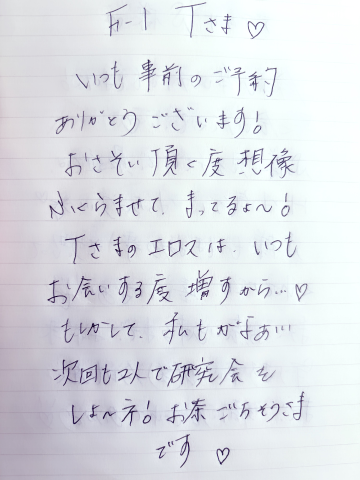 F-1 Tさま♡
いつも事前のご予約
ありがとうございます!
おさそい頂く度想像
ふくらませて、まってるよ〜!
Tさまのエロスは、いつも
お会いする度増すから…♡
もしかして、私もかなぁ…
次回も2人で研究会を
しよ〜ネ!お茶ごちそうさま
です♡